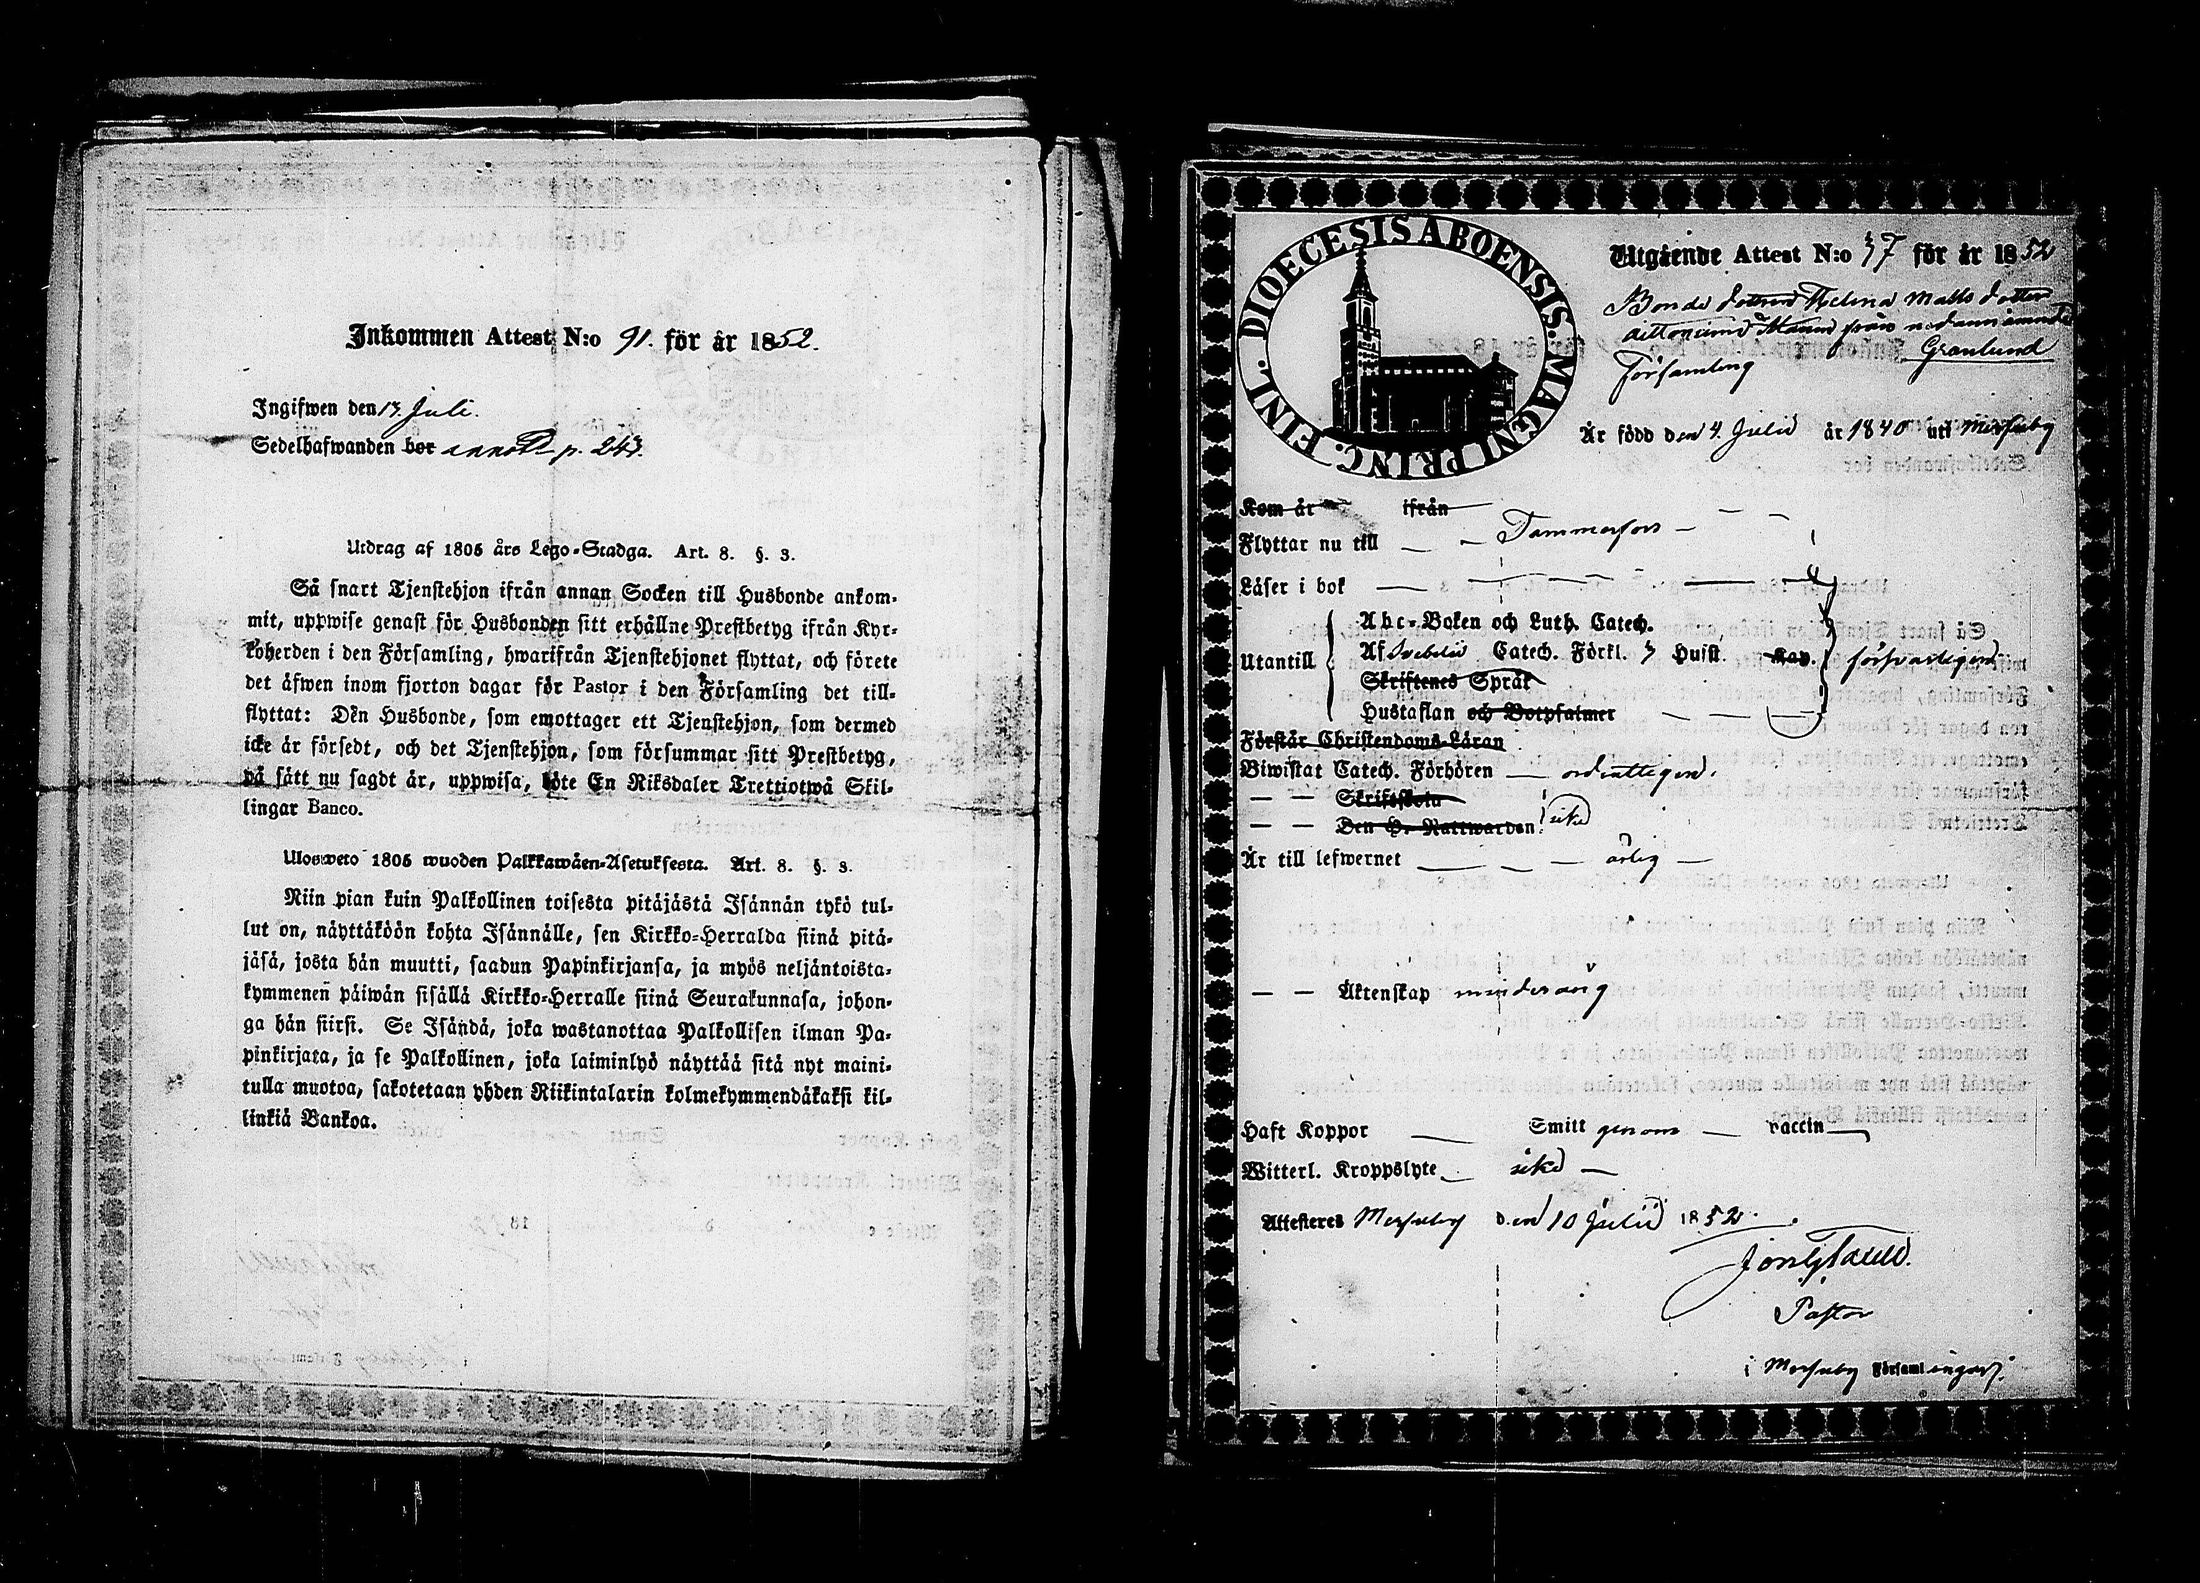 Inkommen Attest N:o 91. för år 1852.
Ingifwen den 13 Juli.
Sedelhafwanden bor annot p. 243.
Utdrag af 1805 års Lego-Stadga. Art. 8. §. 3.
Så snart Tjenstehjon ifrån annan Socken till Husbonde ankom-
mit, uppwise genast för Husbonden sitt erhållne Prestbetyg ifrån Kyr-
koherden i den Församling, hwarifrån Tjenstehjonet flyttat, och förete
det äfwen inom fjorton dagar för Pastor i den Församling det till-
flyttat: Den Husbonde, som emottager ett Tjenstehjon, som dermed
icke är försedt, och det Tjenstehjon, som försummar sitt Prestbetyg,
på sätt nu sagdt är, uppwisa, böte En Riksdaler Trettiotwå Skil-
lingar Banco.
Ulosweto 1805 wuoden Palkkawäen-Asetuksesta. Art. 8. §. 3.
Niin pian kuin Palkollinen toisesta pitäjästä Isännän tykö tul-
lut on, näyttäköön kohta Isännälle, sen Kirkko-Herralda siinä pitä-
jäsä, josta hän muutti, saadun Papinkirjansa, ja myös neljäntoista-
kymmenen päiwän sisällä Kirkko-Herralle siinä Seurakunnasa, johon-
ga hän siirsi. Se Isändä, joka wastanottaa Palkollisen ilman Pa-
pinkirjata, ja se Palkollinen, joka laiminlyö näyttää sitä nyt maini-
tulla muotoa, sakotetaan yhden Riikintalarin kolmekymmendäkaksi kil-
linkiä Bankoa.
DIOECESIS ABOENSIS. MAGNI PRINC. FINL.
Utgående Attest N:o 37 för år 1852
Bonde dottren Helena Matts dotter
från nedannämnde
Granlund
Församling
Är född den 4 Julii år 1840 uti Merjuby
Kom år ifrån
Flyttar nu till Tammerfors
Läser i bok
Abc-Boken och Luth. Catech.
Utantill Af Svebelii Catech. Förkl. Husfl. Hav. försvarligen
Skriftenes Språk
Hustaflan och Botpsalmer
Förstår Christendoms Läran
Biwistat Catech. Förhören ordentligen.
— — Skriftskola
— — Den H. Nattwarden icke
Är till lefwernet ärlig
— — Äktenskap minderårig
Haft Koppor Smitt genom vaccin
Witterl. Kroppslyte icke
Attesteres Merjuby den 10 Julii 1852.
Pastor
i Merjuby Församlingar.